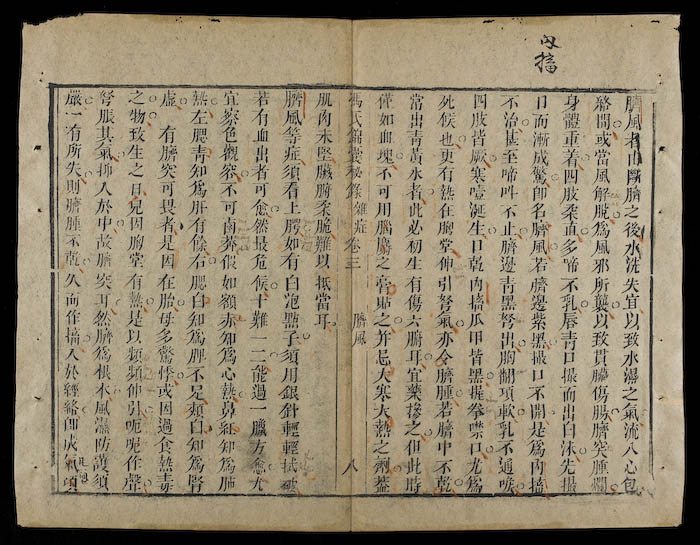 內搐
臍風者由斷臍之後水洗失宜以致水濕之氣流入心包
絡間或當風解脫為風邪所襲以致貫臟傷腸臍突腫爛
身體重着四肢柔直多啼不乳唇青口撮而出白沫先撮
口而漸成驚即名臍風若臍邊紫黑撮口不開是為內搐
不治甚至啼呼不止臍邊青黑弩出胸關項軟乳不通喉
四肢皆厥寒噎涎生口乾內搐爪甲皆黑捏拳噤口尤為
死候也更有熱在胸堂伸引弩氣亦令臍腫若臍中不乾
當出青黃水者此必初生有傷六腑耳宜藥摻之但此時
僅如血塊不可用腦麝之膏貼之并忌大寒大熱之劑蓋
馮氏錦囊秘錄 雜症 卷三 臍風 八
肌肉未堅臟腑柔脆難以抵當耳
臍風等症須看上腭如有白泡點子須用銀針輕輕拭破
若有血出者可愈然最危候十難一二能過一臘方愈尤
宜察色觀 不可鹵莽假如額赤知為心熱鼻紅知為肺
熱左腮青知為肝有餘右腮白知為脾不足頦白知為腎
虛 有臍突可畏者是因在胎母多驚悸或因過食熱毒
之物致生之日兒因胸堂有熱是以頻頻伸引呃呃作聲
弩脹其氣抑入於中故臍突耳然臍為根本風濕防護須
嚴一有所失則臍腫不乾久而作搐入於經絡即成氣